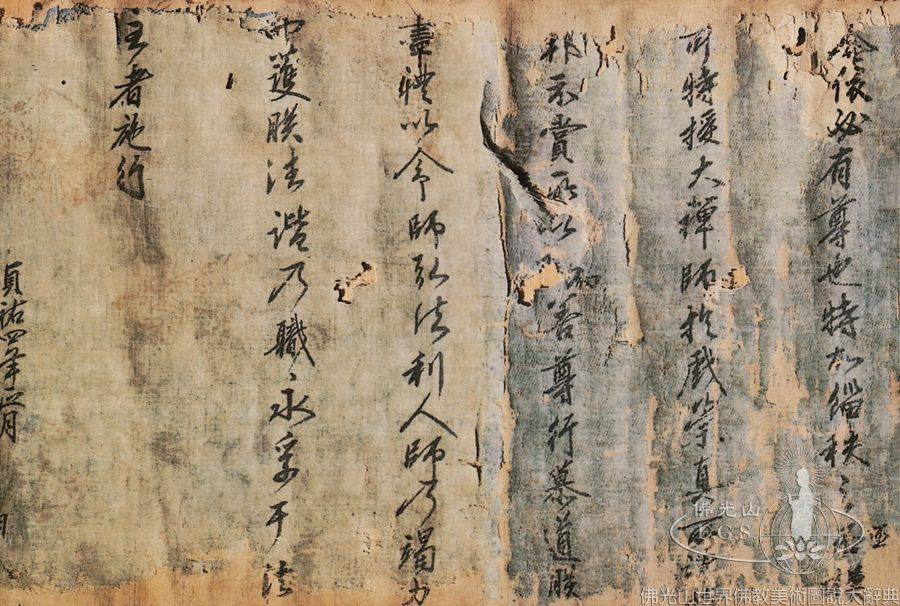 依必有尊也特加緇秩之
可特授大禪師於戲等真
非示賞所以善尊行慕道朕
盡禮以令師弘法利人師乃竭力
而護朕法諧乃職永孚于法
主者施行
貞祐四年正月
佛光山
F.G.S.
佛光山世界佛教美術圖說大辭典